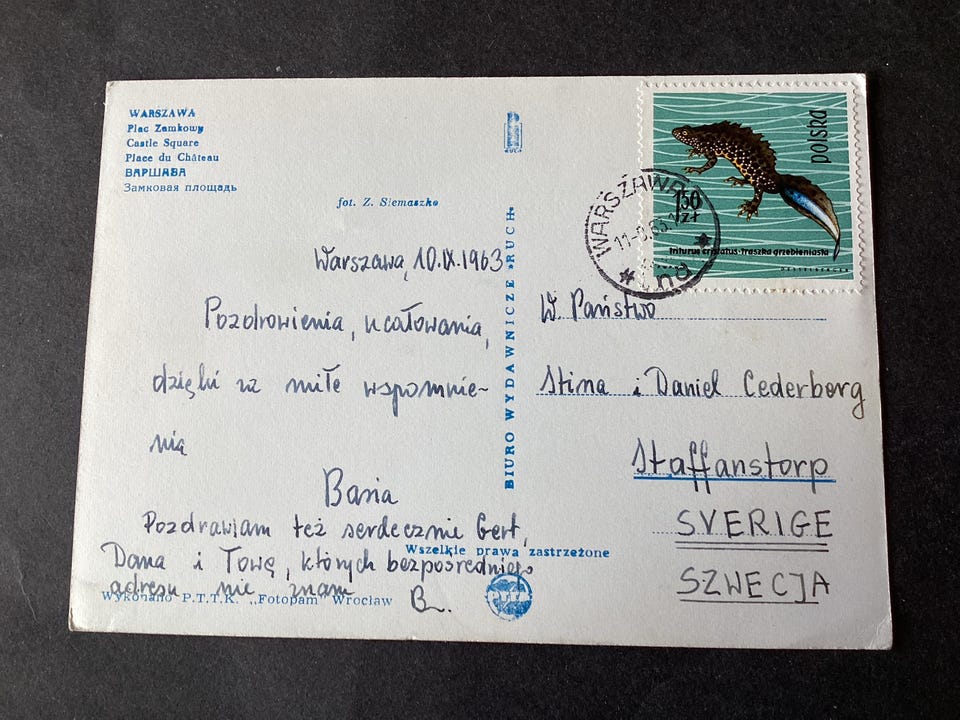 WARSZAWA
Plac Zamkowy
Castle Square
Place du Château
ВАРШАВА
Замковая площадь
fot. Z. Siemaszko
RUCH
Warszawa, 10.IX.1963
Pozdrowienia, ucałowania,
dzięki za miłe wspomnie-
nia
Basia
Pozdrawiam też serdecznie Gert,
Dana i Towę, których bezpośredniego
adresu nie znam
B.
Wszelkie prawa zastrzeżone
Wykonano P.T.T.K. „Fotopam" Wrocław
PTTK
BIURO WYDAWNICZE „RUCH"
polska
1,50
zł
triturus cristatus-traszka grzebieniasta
WARSZAWA
W. Państwo
Stina i Daniel Cederberg
Staffanstorp
SVERIGE
SZWECJA